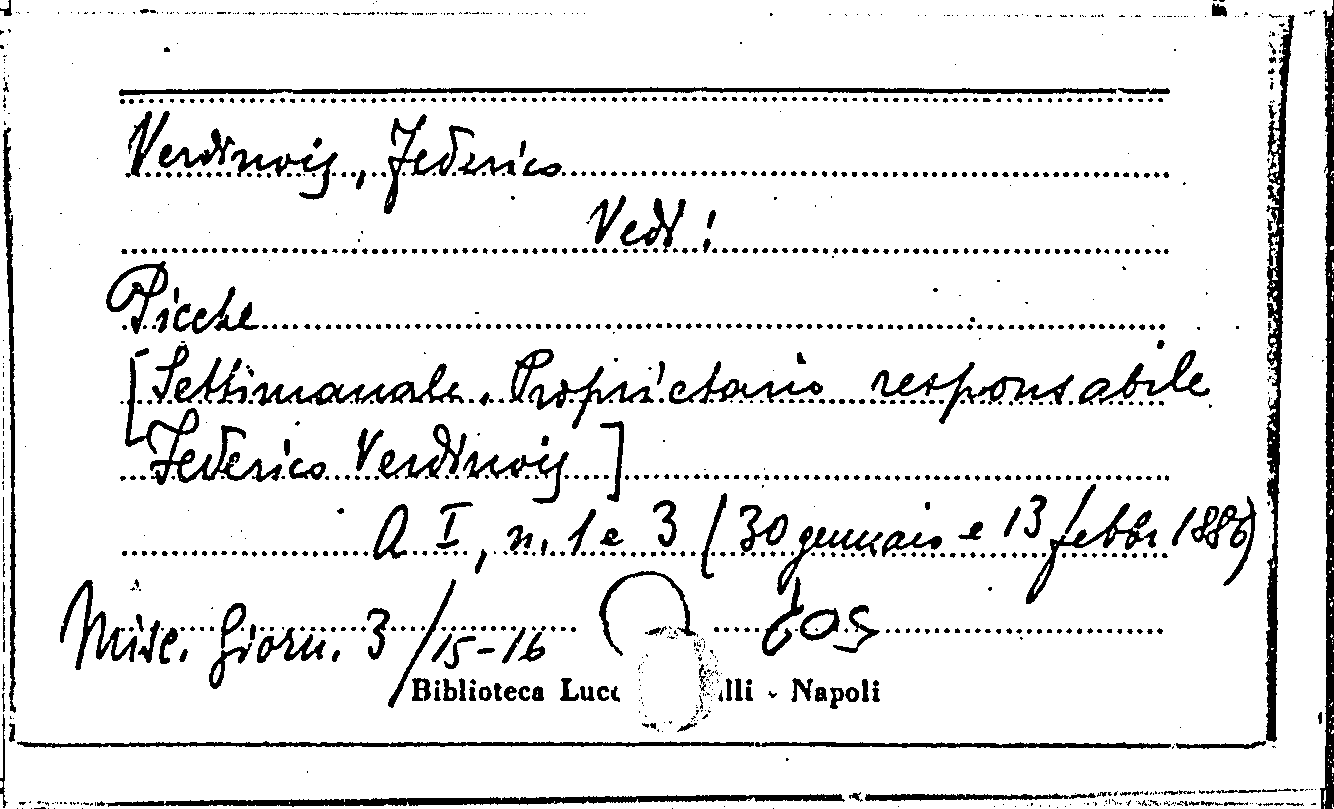 Verdinois, Federico
Vedi:
Picche
[Settimanale. Proprietario responsabile
Federico Verdinois]
A I, n. 1 e 3 (30 gennaio e 13 febbr 1886)
Misc. Giorn. 3/15-16
Biblioteca Lucc lli - Napoli